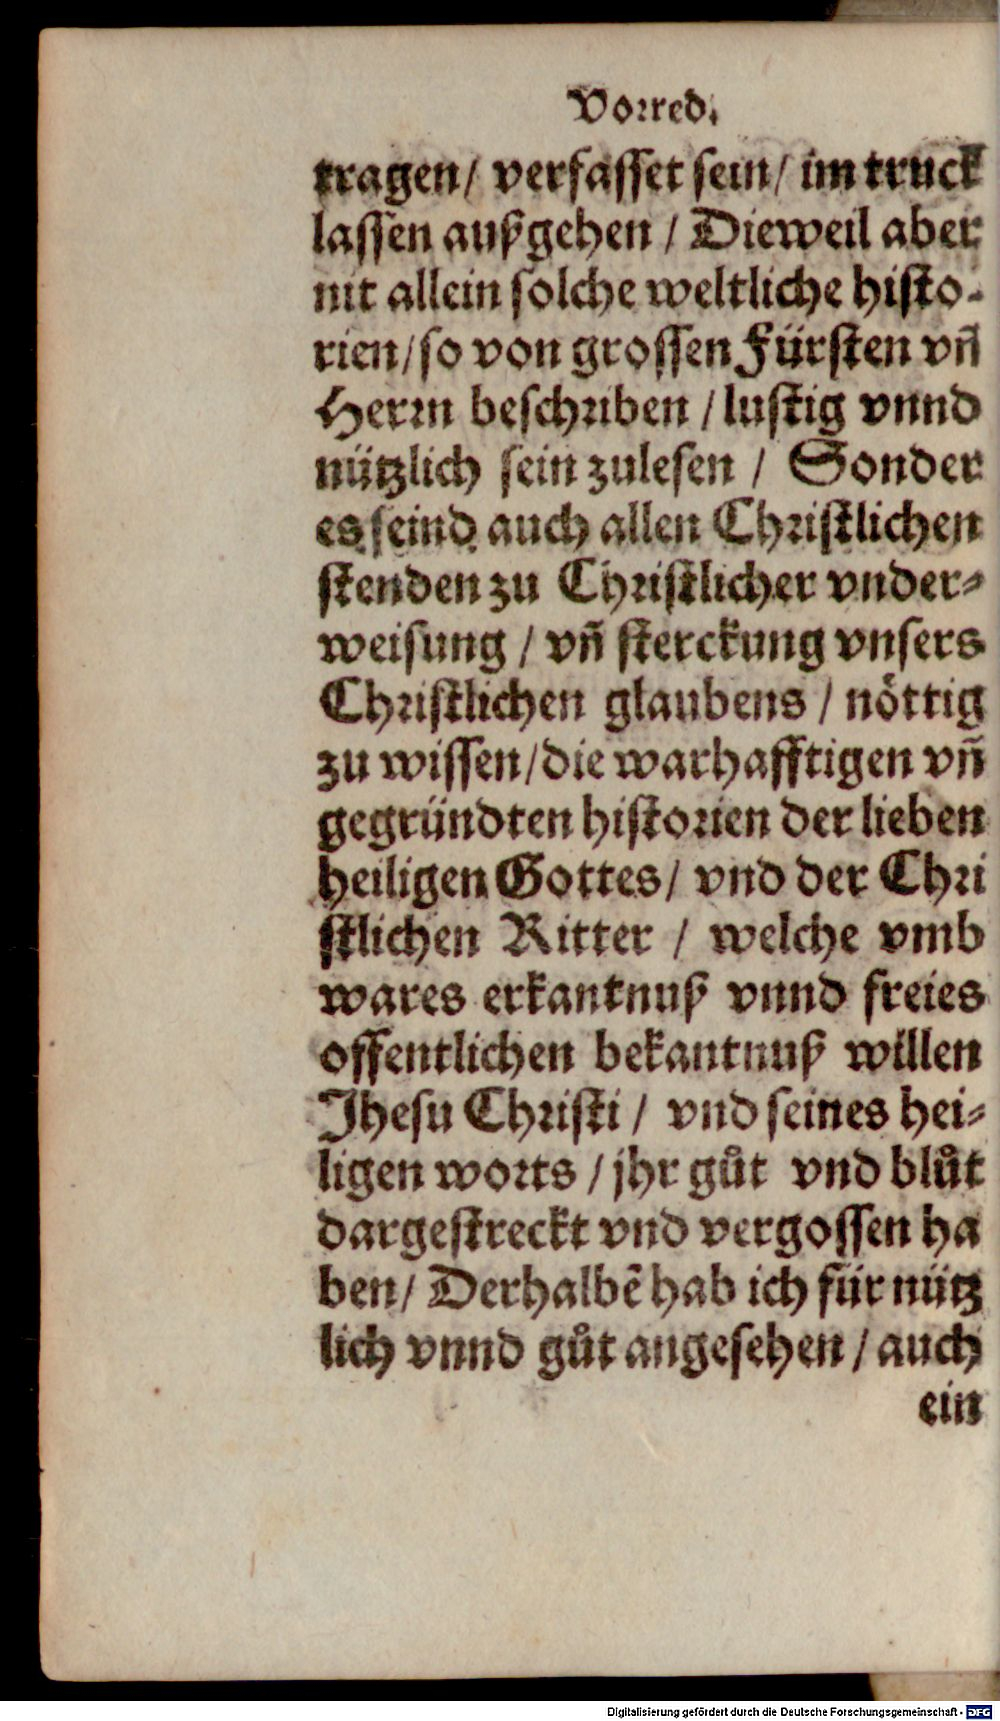 Vorred.
tragen/ verfasset sein/ im truck
lassen außgehen / Dieweil aber
nit allein solche weltliche histo-
rien/so von grossen Fürsten vñ
Herrn beschriben /lustig vnnd
nützlich sein zulesen / Sonder
es seind auch allen Christlichen
stenden zu Christlicher vnder-
weisung / vñ sterckung vnsers
Christlichen glaubens / nöttig
zu wissen/die warhafftigen vñ
gegründten historien der lieben
heiligen Gottes/ vnd der Chri
stlichen Ritter / welche vmb
wares erkantnuß vnnd freies
offentlichen bekantnuß willen
Jhesu Christi / vnd seines hei-
ligen worts / jhr gůt vnd blůt
dargestreckt vnd vergossen ha
ben/ Derhalbẽ hab ich für nütz
lich vnnd gůt angesehen / auch
ein
Digitalisierung gefördert durch die Deutsche Forschungsgemeinschaft - DFG